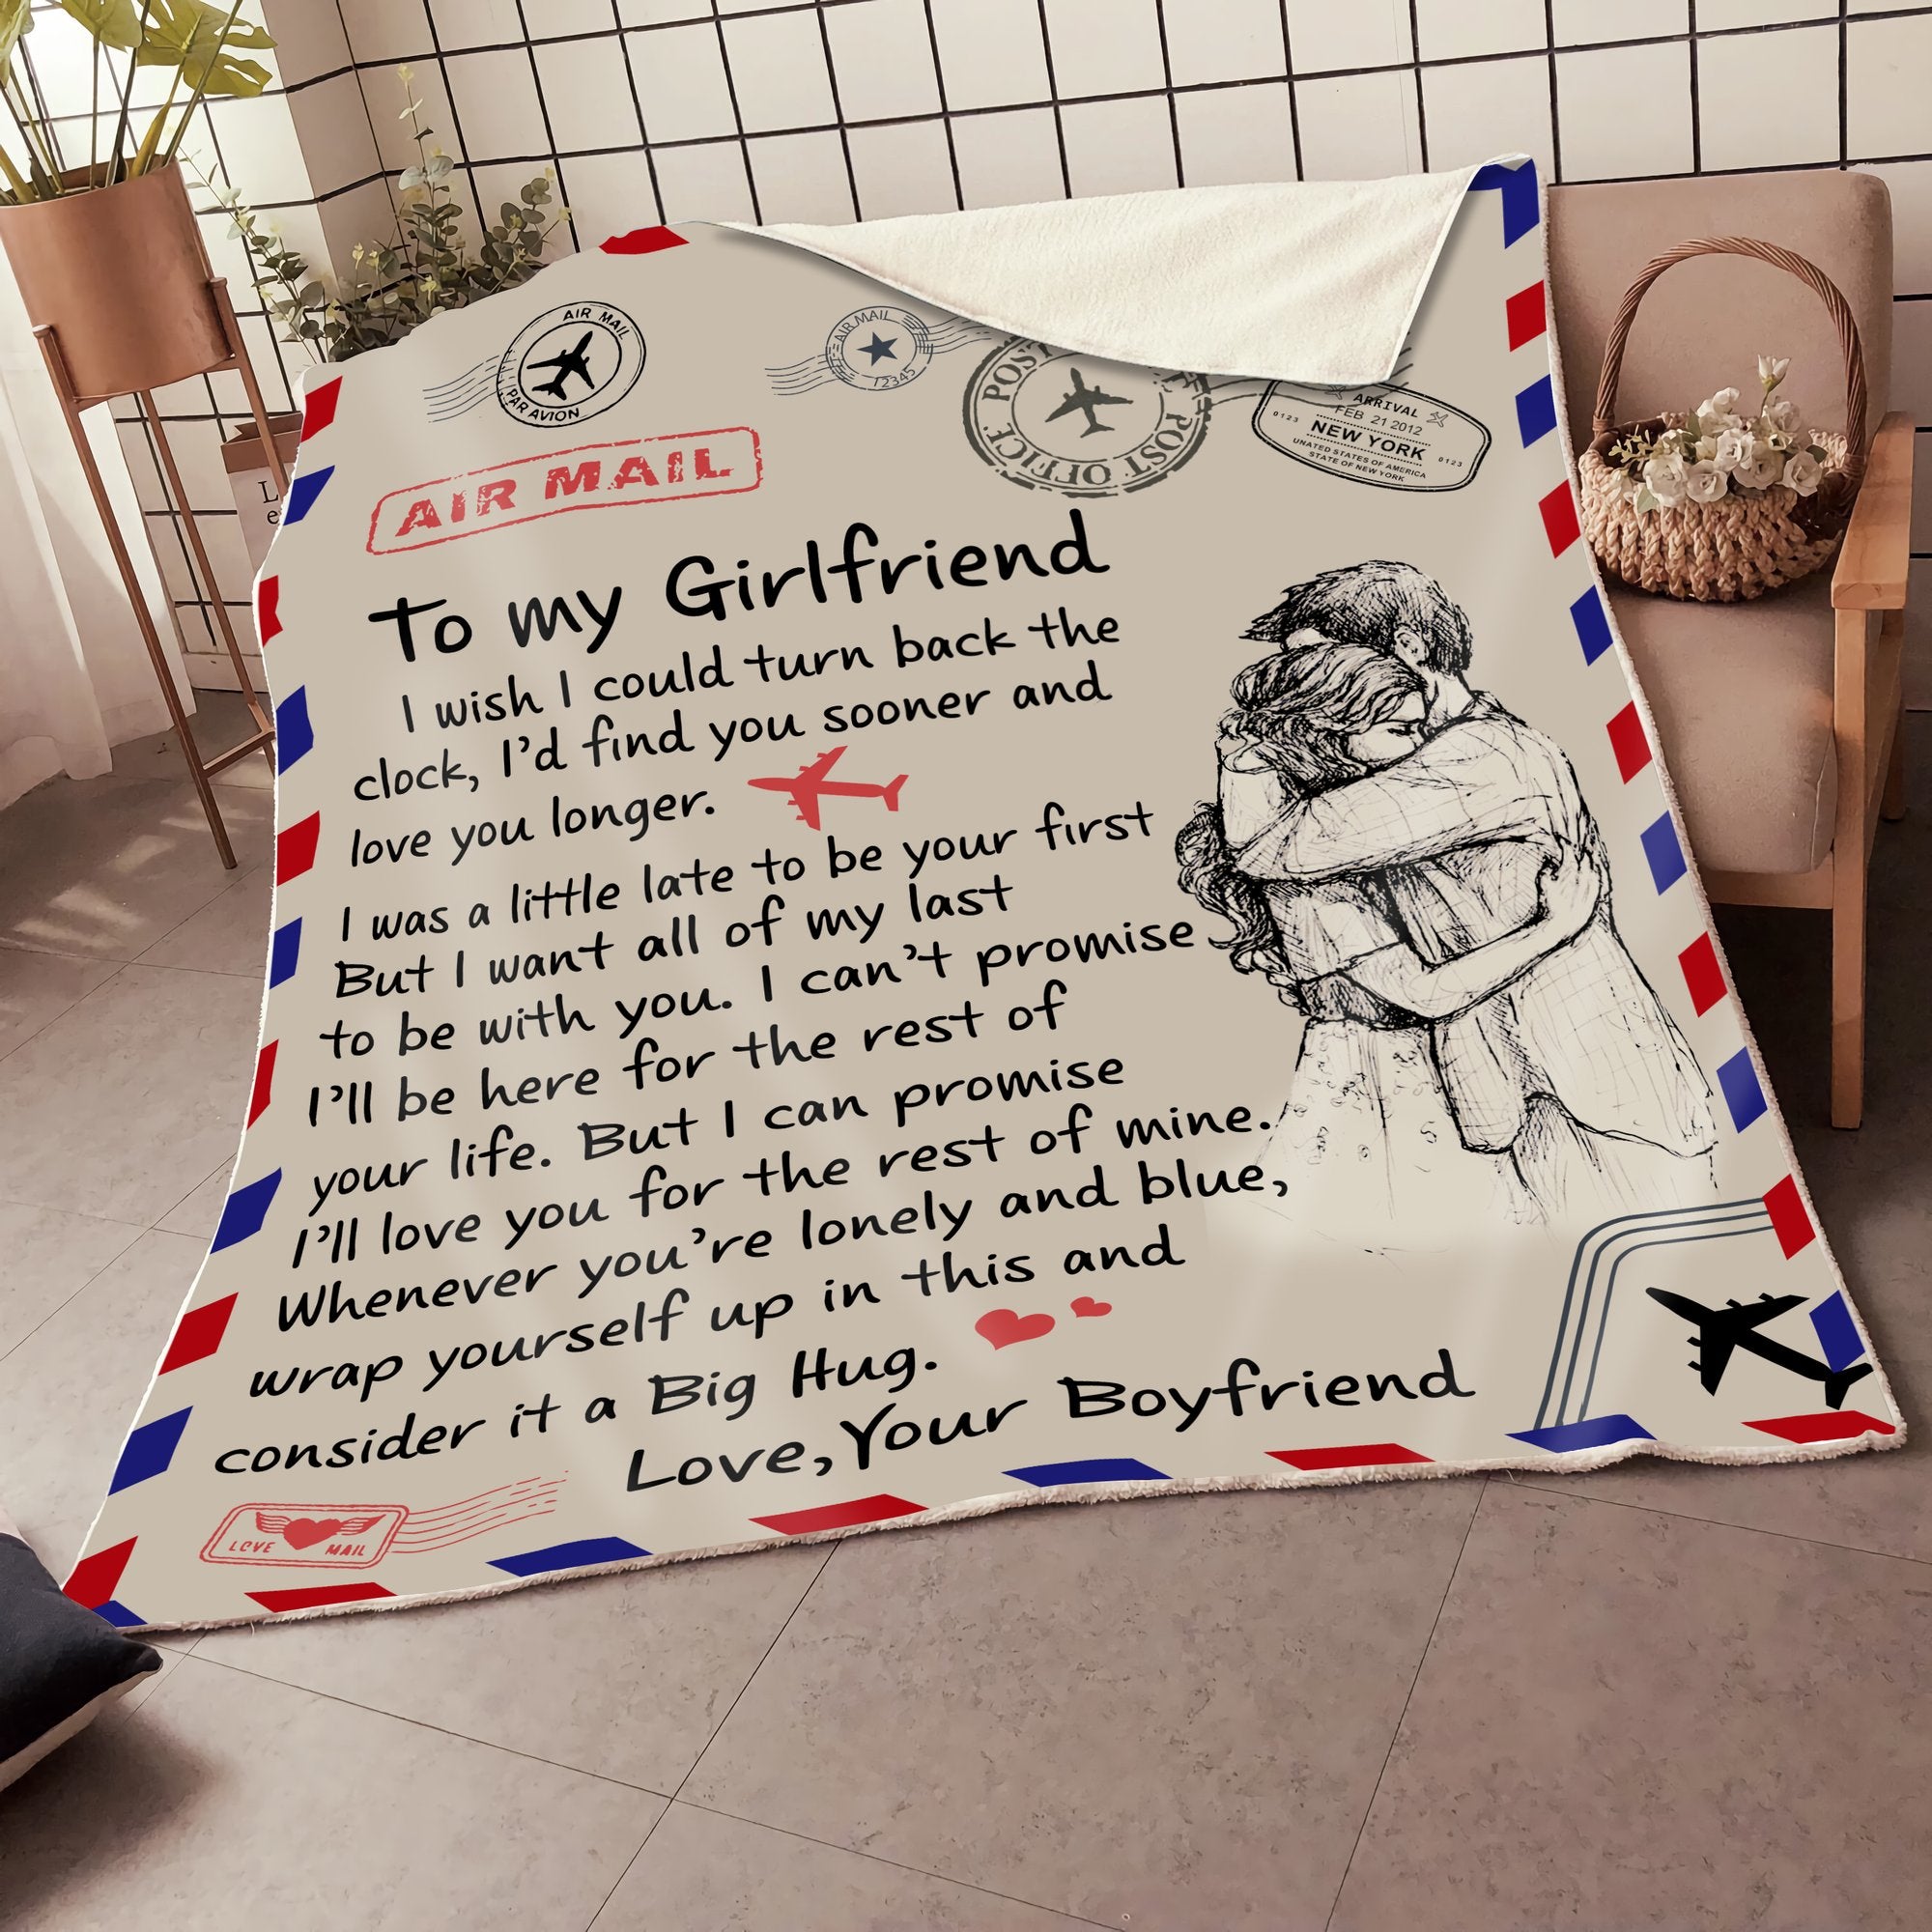 AIR MAIL
PAR AVION
AIR MAIL
12345
POST OFFICE
POST OFFICE
ARRIVAL
FEB 21 2012
0123 NEW YORK 0123
UNITED STATES OF AMERICA
STATE OF NEW YORK
AIR MAIL
To my Girlfriend
I wish I could turn back the
clock, I'd find you sooner and
love you longer.
I was a little late to be your first
But I want all of my last
to be with you. I can't promise
I'll be here for the rest of
your life. But I can promise
I'll love you for the rest of mine.
Whenever you're lonely and blue,
wrap yourself up in this and
consider it a Big Hug.
Love, Your Boyfriend
LOVE MAIL